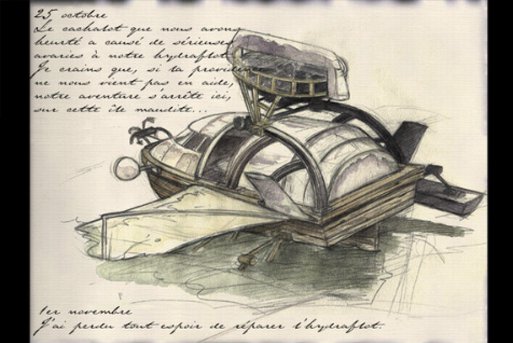 25 octobre
Le cachalot que nous avons
heurté a causé de sérieuses
avaries à notre hydraflot.
Je crains que, si la providence
ne nous vient pas en aide,
notre aventure s'arrête ici,
sur cette île maudite...
1er novembre
J'ai perdu tout espoir de réparer l'hydraflot.